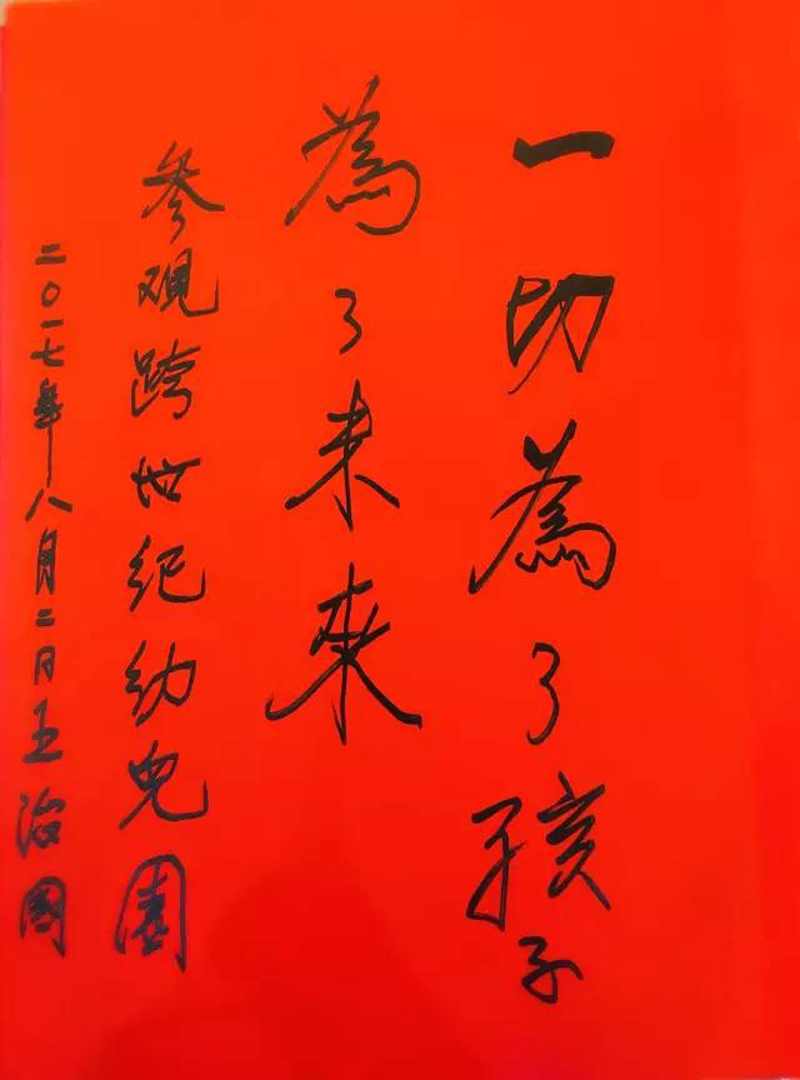 一切為了孩子
為了未來
參觀跨世纪幼兒園
二〇一七年八月二日王治國